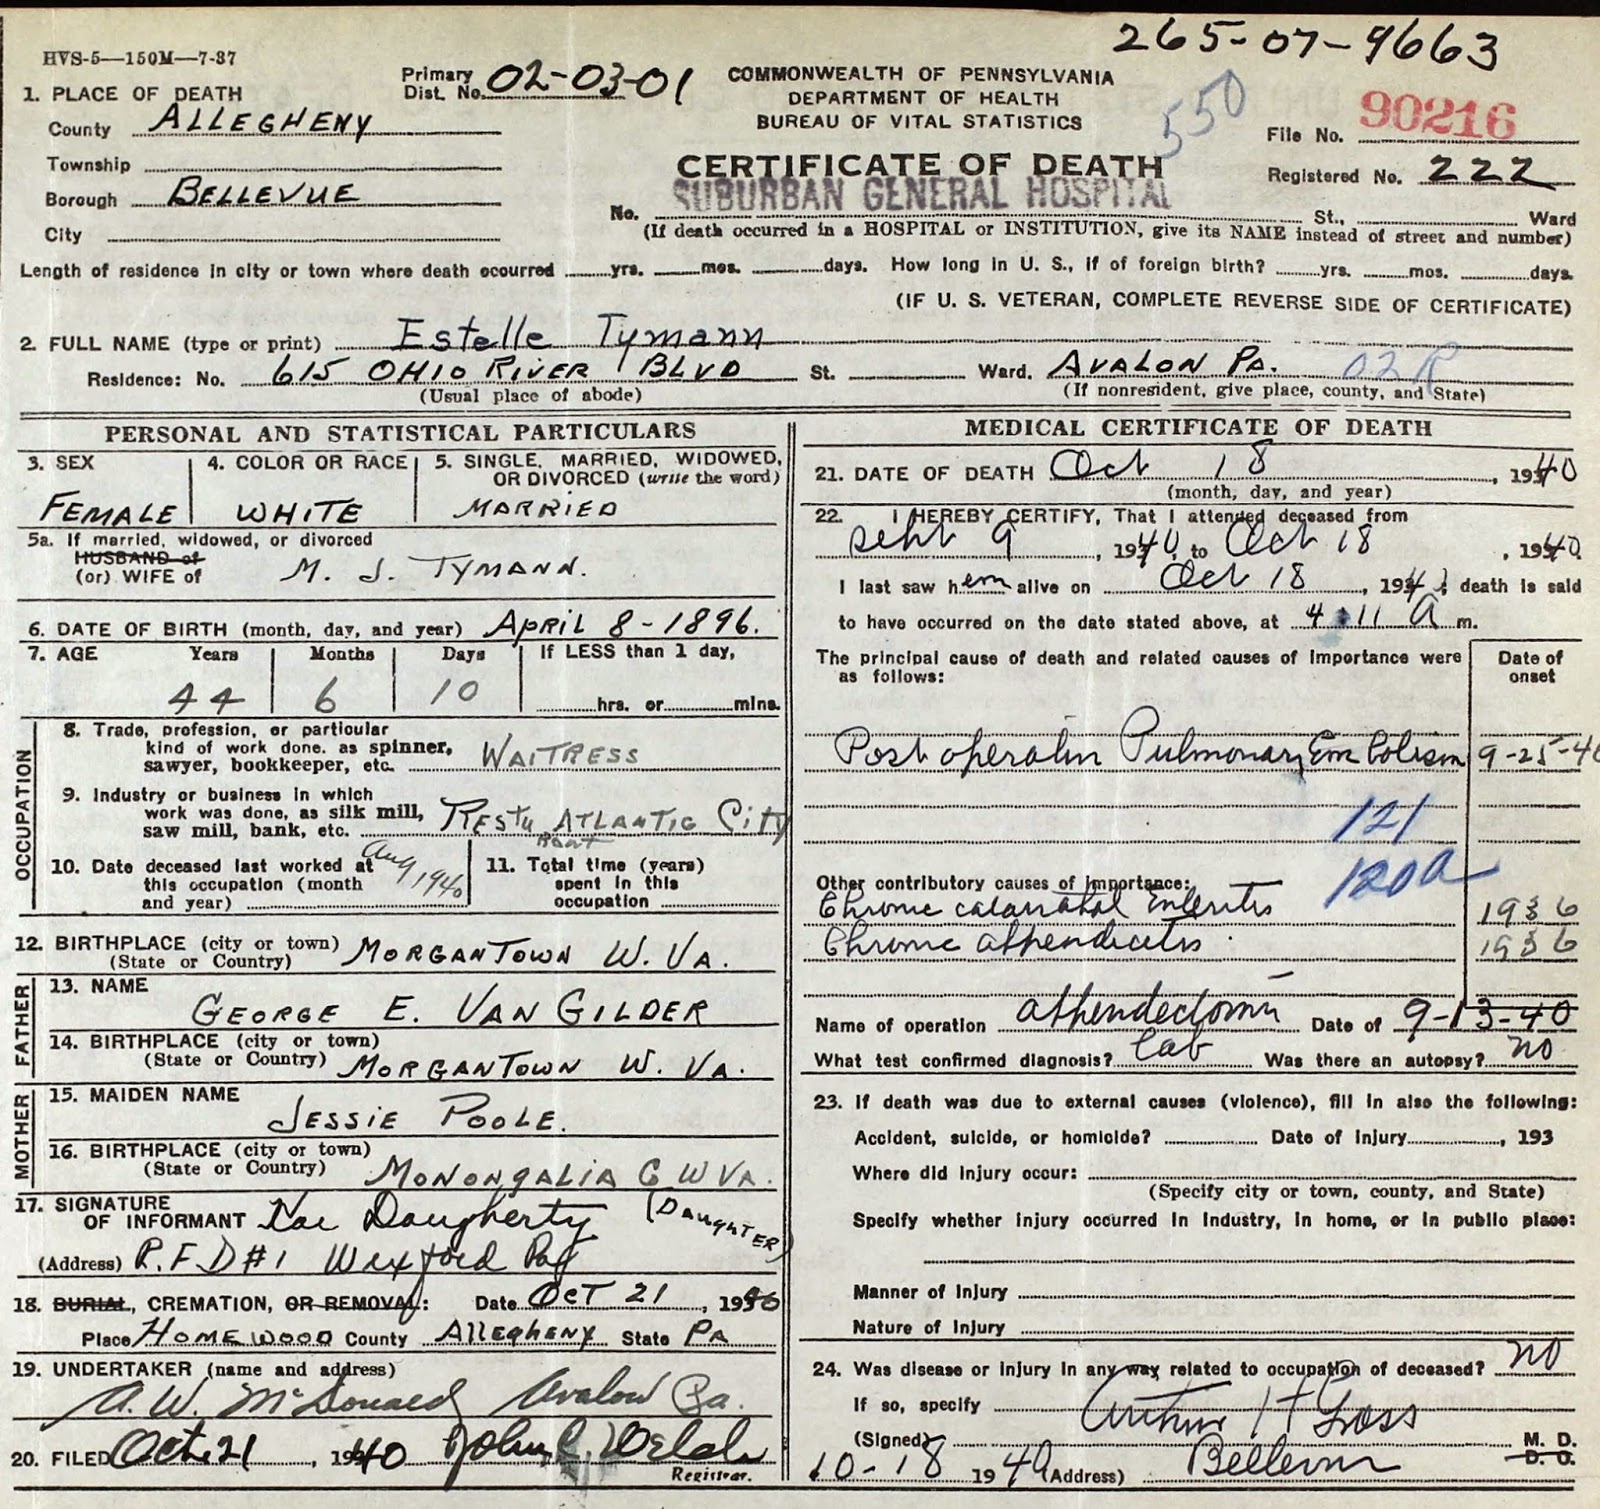 265-07-9663
HVS-5—150M—7-37
Primary Dist. No. 02-03-01
COMMONWEALTH OF PENNSYLVANIA
DEPARTMENT OF HEALTH
BUREAU OF VITAL STATISTICS
550
File No. 90216
1. PLACE OF DEATH
County ALLEGHENY
CERTIFICATE OF DEATH
Registered No. 222
Township
Borough BELLEVUE
SUBURBAN GENERAL HOSPITAL
No. St., Ward
City
(If death occurred in a HOSPITAL or INSTITUTION, give its NAME instead of street and number)
Length of residence in city or town where death occurred yrs. mos. days. How long in U. S., if of foreign birth? yrs. mos. days.
(IF U. S. VETERAN, COMPLETE REVERSE SIDE OF CERTIFICATE)
2. FULL NAME (type or print) Estelle Tymann
Residence: No. 615 OHIO RIVER BLVD St. Ward. AVALON PA. 02R
(Usual place of abode) (If nonresident, give place, county, and State)
PERSONAL AND STATISTICAL PARTICULARS
3. SEX 4. COLOR OR RACE 5. SINGLE, MARRIED, WIDOWED,
OR DIVORCED (write the word)
FEMALE WHITE MARRIED
5a. If married, widowed, or divorced
HUSBAND of
(or) WIFE of M. J. TYMANN.
6. DATE OF BIRTH (month, day, and year) APRIL 8-1896.
7. AGE Years Months Days If LESS than 1 day,
44 6 10 hrs. or mins.
OCCUPATION
8. Trade, profession, or particular
kind of work done, as spinner,
sawyer, bookkeeper, etc. WAITRESS
9. Industry or business in which
work was done, as silk mill,
saw mill, bank, etc. RESTU ATLANTIC CITY
RANT
10. Date deceased last worked at
this occupation (month
and year) Aug 1940
11. Total time (years)
spent in this
occupation
12. BIRTHPLACE (city or town) MORGANTOWN W. VA.
(State or Country)
FATHER
13. NAME
GEORGE E. VAN GILDER
14. BIRTHPLACE (city or town)
(State or Country) MORGANTOWN W. VA.
MOTHER
15. MAIDEN NAME
JESSIE POOLE.
16. BIRTHPLACE (city or town)
(State or Country) MONONGALIA C WVA.
17. SIGNATURE
OF INFORMANT Daugherty (DAUGHTER)
(Address) R.F.D #1 Wexford Pa
18. BURIAL, CREMATION, OR REMOVAL: Date OCT 21, 1940
Place HOMEWOOD County ALLEGHENY State PA
19. UNDERTAKER (name and address)
A. W. McDonald Avalon Pa.
20. FILED Oct. 21, 1940 John
Registrar.
MEDICAL CERTIFICATE OF DEATH
21. DATE OF DEATH Oct 18, 1940
(month, day, and year)
22. I HEREBY CERTIFY, That I attended deceased from
Sept 9, 1940, to Oct 18, 1940
I last saw h em alive on Oct 18, 194; death is said
to have occurred on the date stated above, at 4:11 A m.
The principal cause of death and related causes of importance were
as follows:
Date of
onset
Post operative Pulmonary Embolism 9-25-40
121
120a
Other contributory causes of importance:
Chronic catarrahal Enteritis 1936
Chronic appendicitis. 1936
Name of operation appendectomy Date of 9-13-40
What test confirmed diagnosis? Lab Was there an autopsy? no
23. If death was due to external causes (violence), fill in also the following:
Accident, suicide, or homicide? Date of injury , 193
Where did injury occur:
(Specify city or town, county, and State)
Specify whether injury occurred in industry, in home, or in public place:
Manner of injury
Nature of injury
24. Was disease or injury in any way related to occupation of deceased? no
If so, specify
(Signed) Arthur H Gross M. D.
D. O.
10-18 1940 (Address) Bellevue